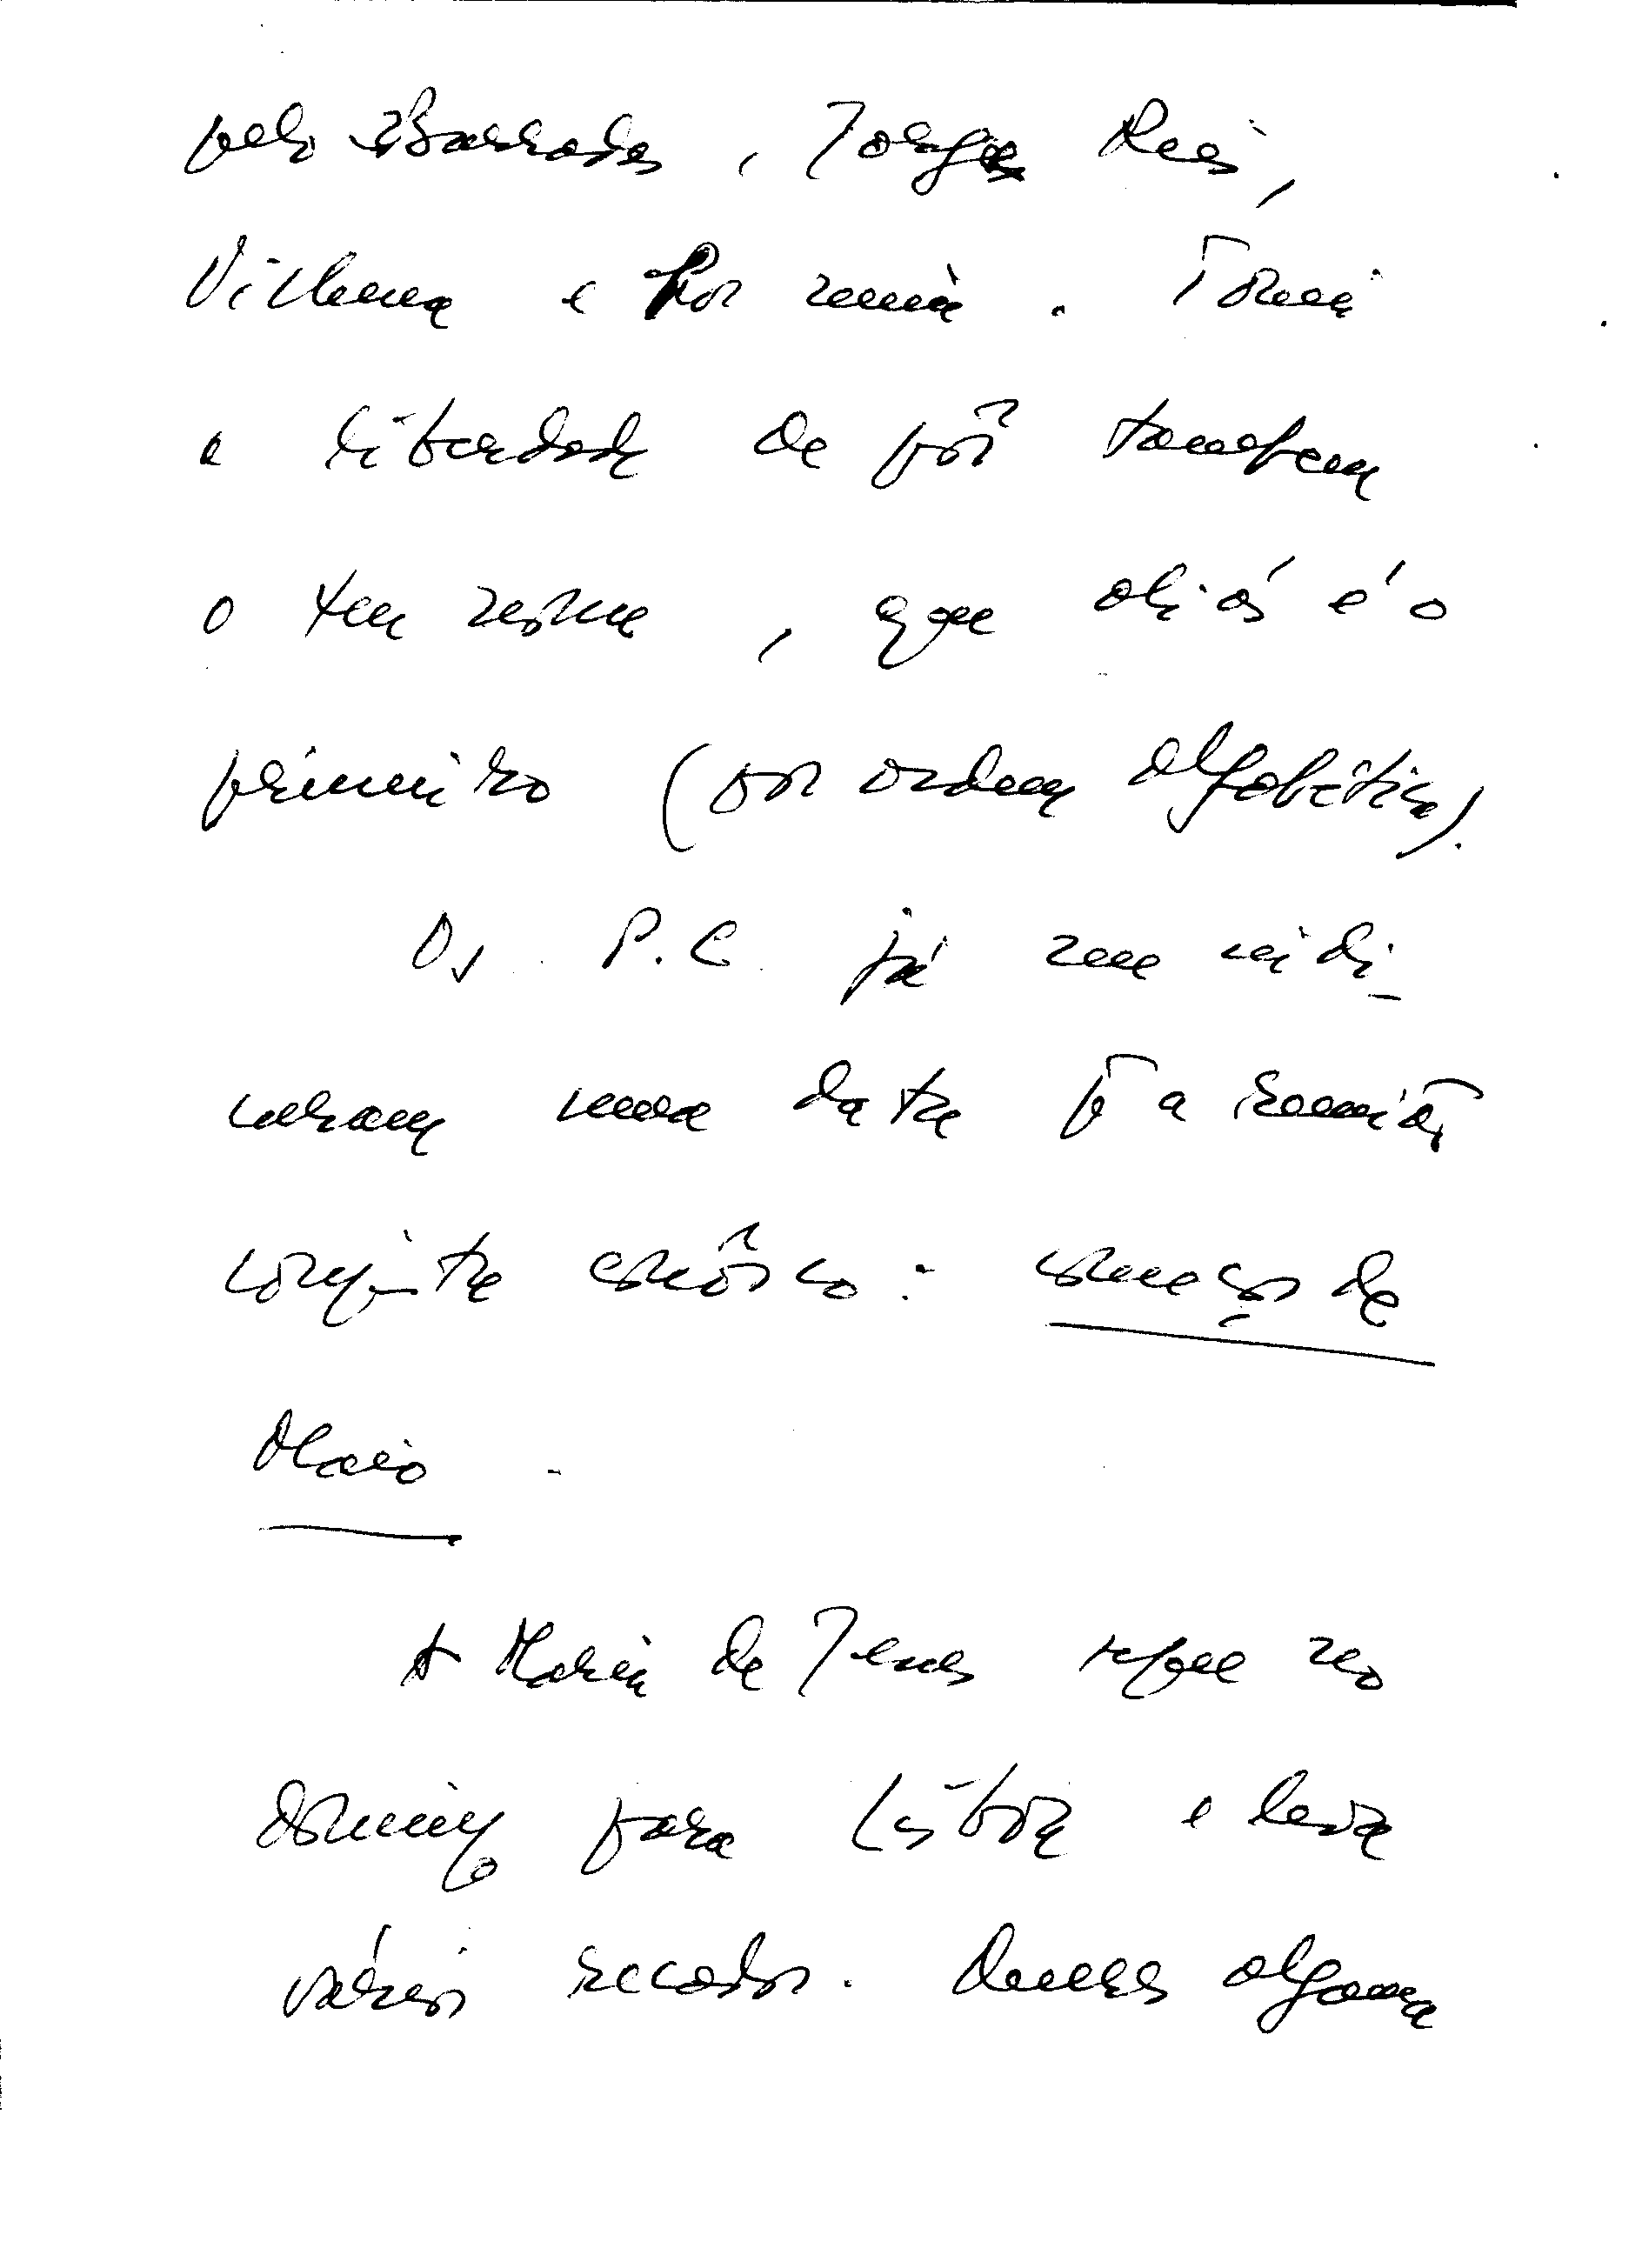 pelo Barradas, Jorge Reis,
Vilhena e por mim. Tomei
a liberdade de pôr tambem
o teu nome, que aliás é o
primeiro (por ordem alfabética).
Os P.C. já me indi-
caram uma data p̄ a reunião
conjunta conôsco: começos de
Maio.
A Maria de Jesus segue no
domingo para Lisboa e leva
vários recados. Demos alguma